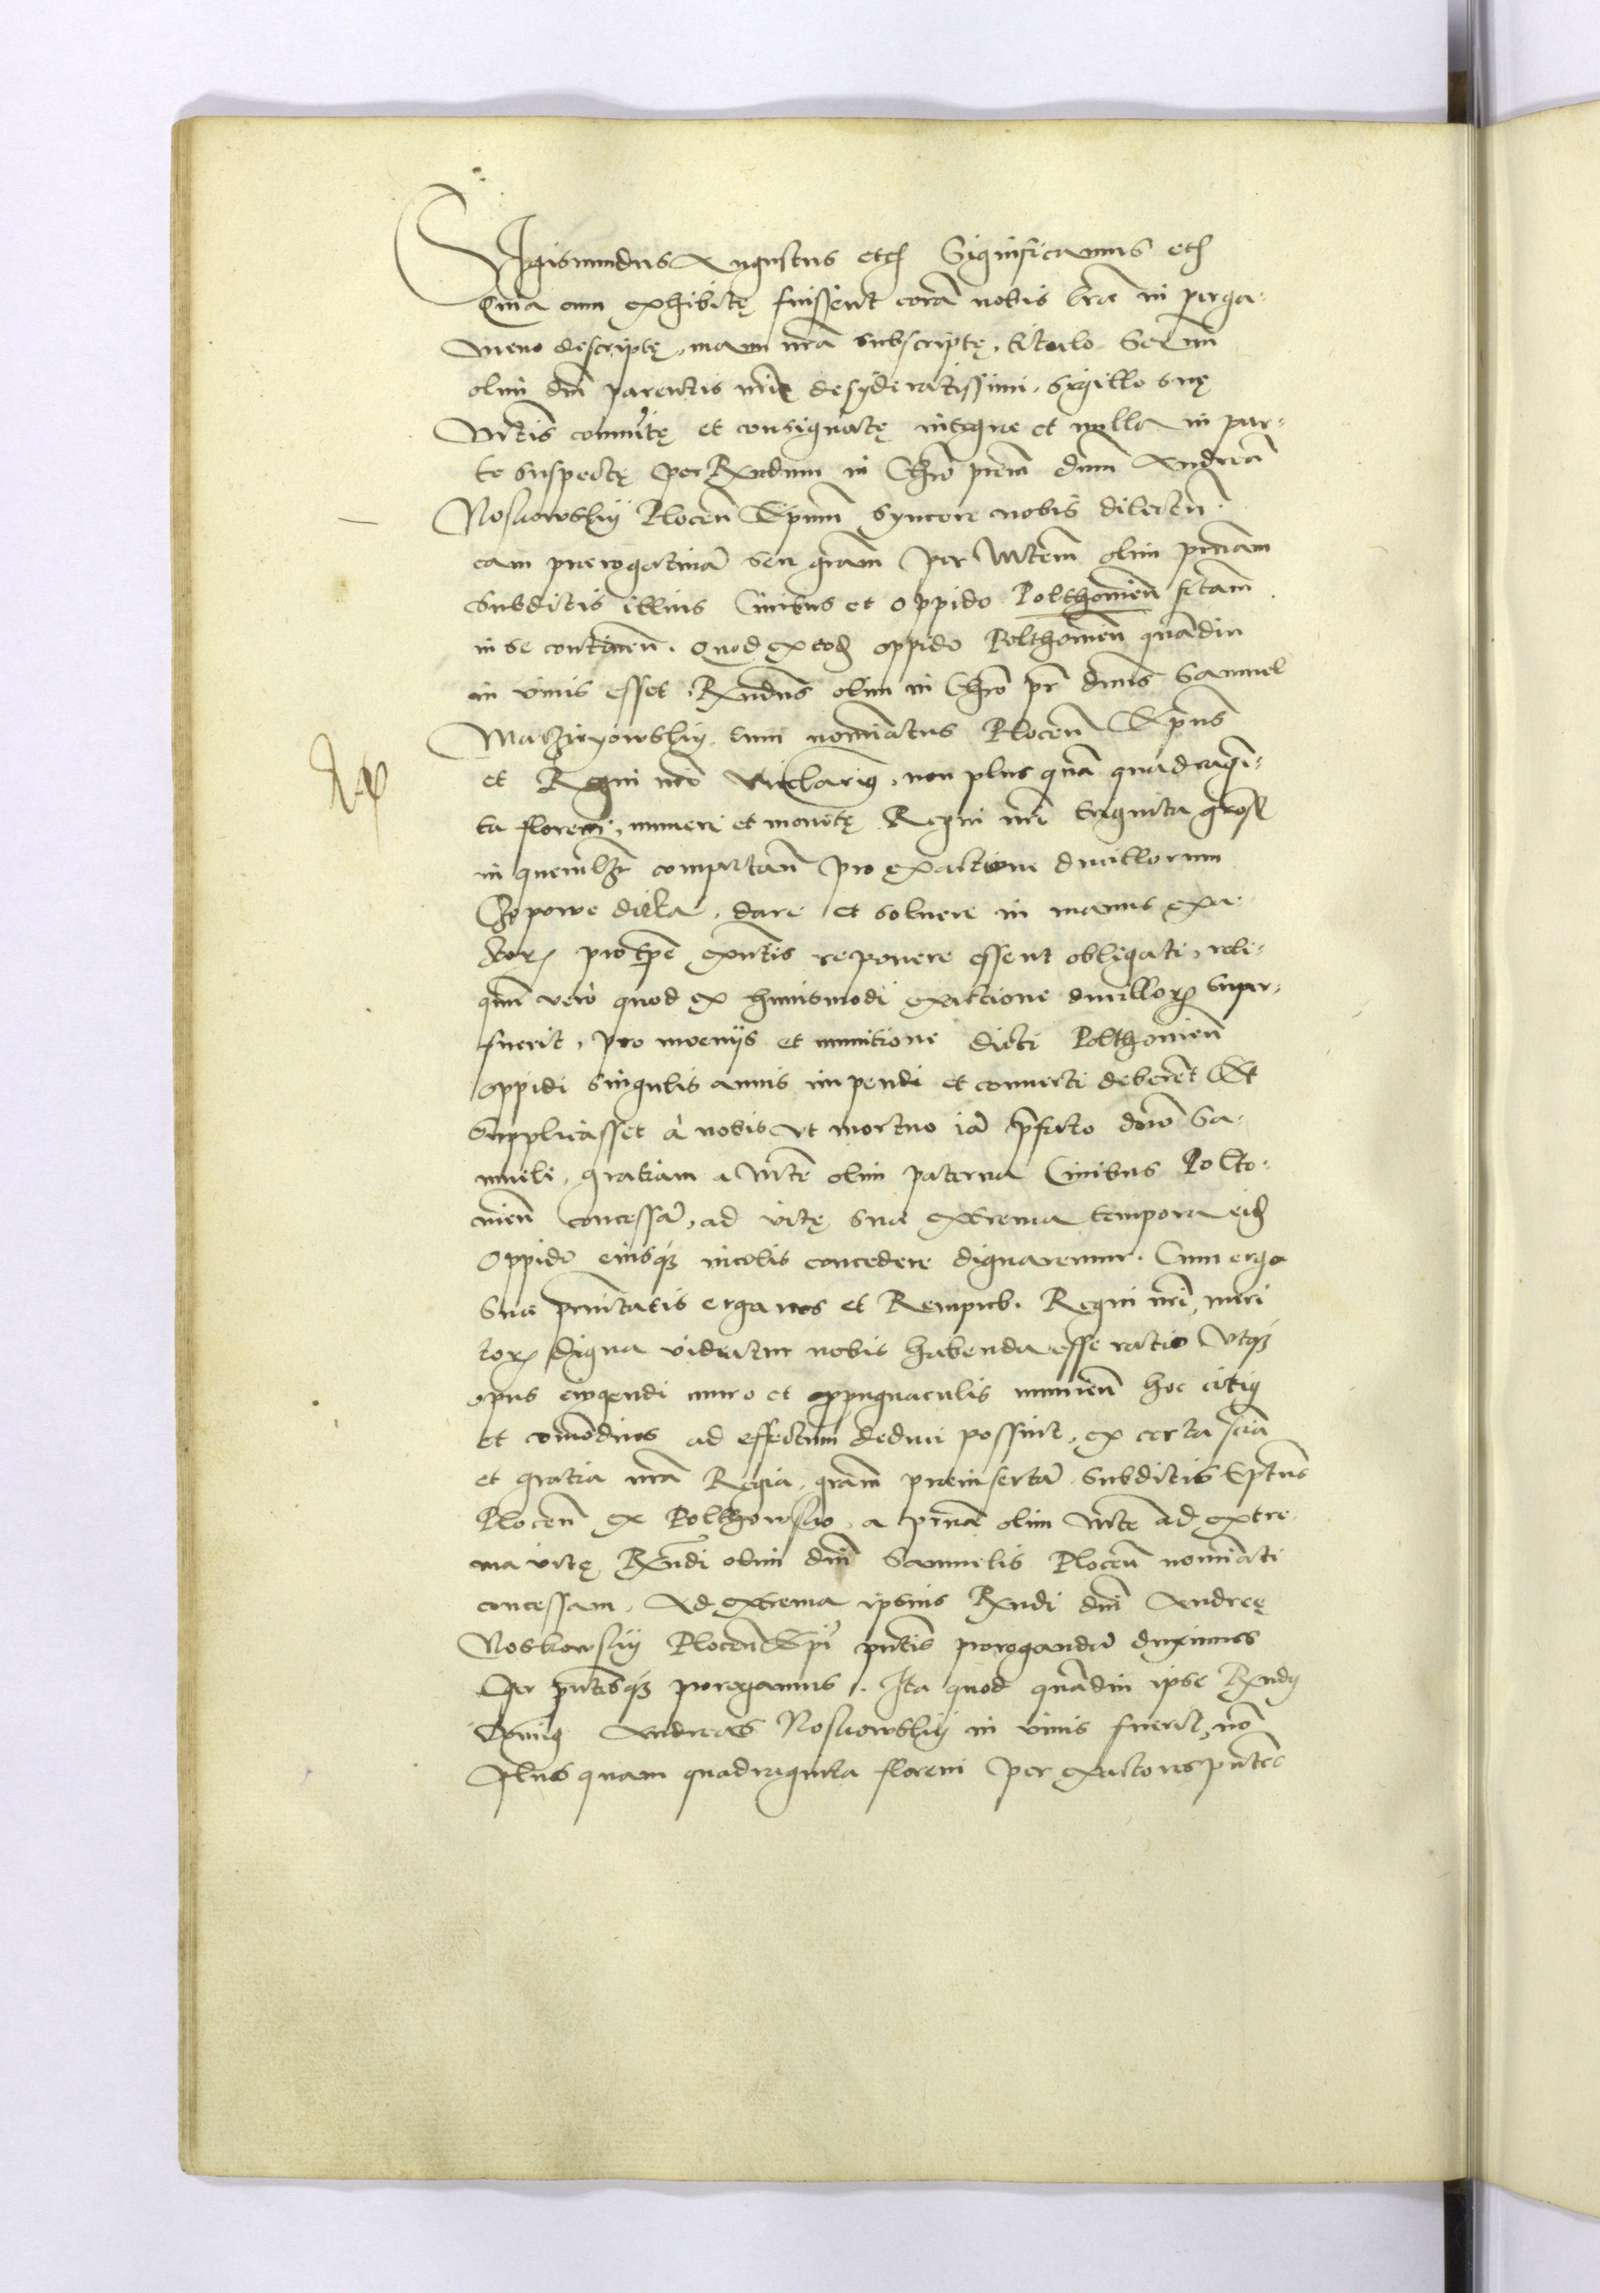 Sigismundus Augustus etc̃ Significamus etc̃
Quia cum exhibitę fuissent corã nobis lr̃æ in perga-
meno descriptę, manu nr̃a subscriptę, titulo Ser mi
olim dñi parentis nr̃i desyderatissimi, sigillo suę
Mtĩs comunitę et consignatę integre et nulla in par-
te suspectę per Rx̃ndum in Chrõ prẽm dnũm Andreã
Noskowskÿ Plocen̄ Ep̄um syncere nobis dilectũ
eam prærogatiuã seu grãm per Mtẽm olim prñam
subditis illius Ciuibus et oppido Polthouien̄ fctam
in se continen̄. Quod ex eod̃ oppido Polthouien̄ quãdiu
in viuis esset, Rx̃ndus olim in Chrõ pr̃ dnus Samuel
Macziejowskÿ, tum nominatus Plocen̄ Ep̄us
et Regni nr̃i vicecancellarius, non plus quã quadragin-
ta floreni, numeri et monetę Regni nr̃i triginta gross̃
in quemlibet computan̄ pro exactione ducillorum
Czopowe dicta, dare et soluere in manus exa-
ctor̃ pro tp̃e exn̄tis reponere essent obligati, reli-
quũ verò quod ex huiusmodi exactione ducillor̃ super-
fuerit, pro mœnijs et munitione dicti Polthouien̄
oppidi singulis annis impendi et conuerti deberet Et
supplicasset à nobis vt mortuo iã p̃fcto dnõ Sa-
mueli, gratiam a Mtẽ olim paterna Ciuibus Polto-
uien̄ concessã, ad vitę suæ extrema tempora eid̃
oppido eiusq3 incolis concedere dignaremur. Cum ergo
Suæ prñitatis erga nos et Rempub. Regni nr̃i, meri
tor̃ digna videatur nobis habenda esse ratio Vtq3
opus erigendi muro et propugnaculis munien̄ hoc citiꝯ
et comodius ad effectum deduci possint, ex certa sciã
et gratia nr̃a Regia, grãm præinsertã subditis Ep̄tus
Plocen̄ ex Polthowsko, a prñã olim Mtẽ ad extre-
ma vitę Rx̃ndi olim dñi Samuelis Plocen̄ nominati
concessam, Ad extrema ipsius Rx̃ndi dñi Andreę
Noskowskÿ Plocen̄ Ep̄i prñtis prorogandũ duximus
Per prñtesq3 prorogamus. Ita quod quãdiu ipse Rx̃ndꝯ
Dnus Andreas Noskowskÿ in viuis fuerit, nõ
plus quam quadraginta floreni per exactores prñtes